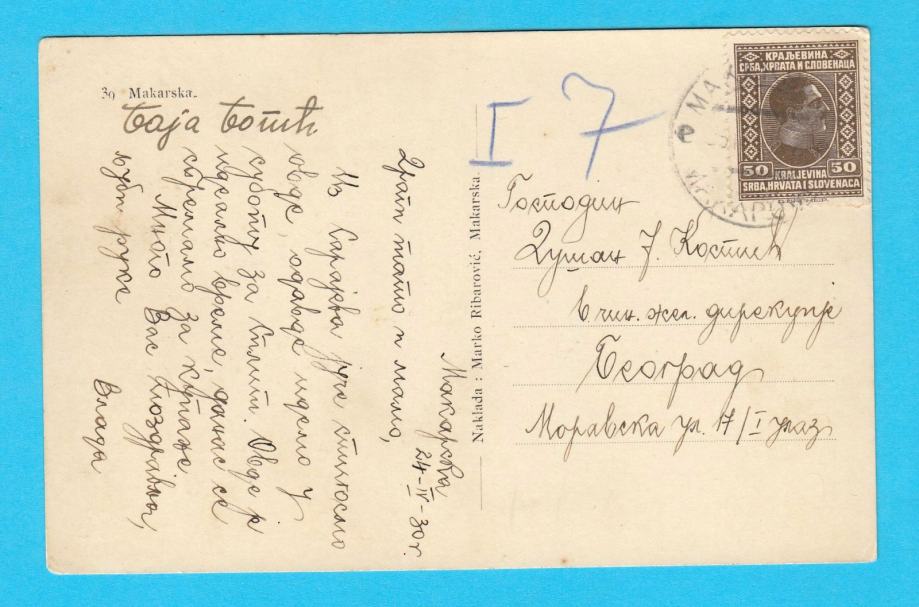 39 Makarska.
Таја Ботић
Макарска,
24-IV-30 г.
Драги татице и мамо,
Из Сарајева јуче стигосмо
овде, одавде идемо у
суботу за Сплит. Овде је
идеално време, данас се
спремамо за купање.
Много Вас поздравља,
љуби руке
Влада
Naklada : Marko Ribarović, Makarska.
I 7
Господин
Душан Ј. Костић
в чин. жел. дирекције
Београд
Моравска ул. 17/I улаз
КРАЉЕВИНА
СРБА, ХРВАТА И СЛОВЕНАЦА
50 50
KRALJEVINA
SRBA, HRVATA I SLOVENACA